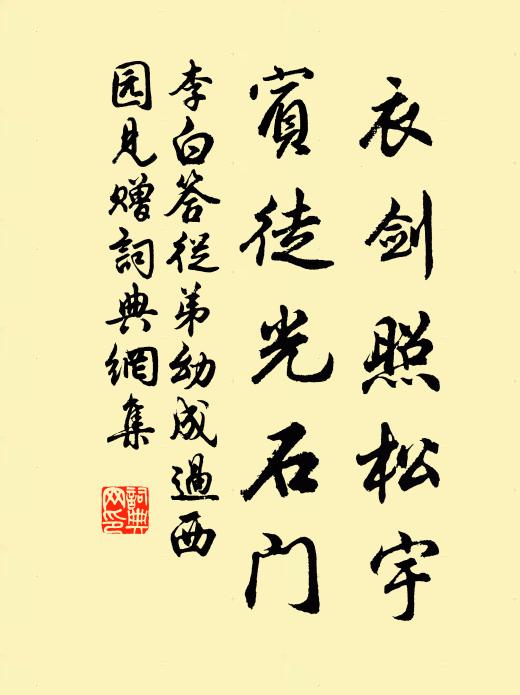 衣剑照松宇
宾徒光石门
李白答從弟幼成過西
园見赠詞典網集
詞典网印